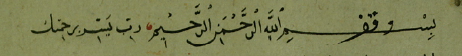 بِسْمِ ٱللَّهِ ٱلرَّحْمَٰنِ ٱلرَّحِيمِ رب يسر برحمتك